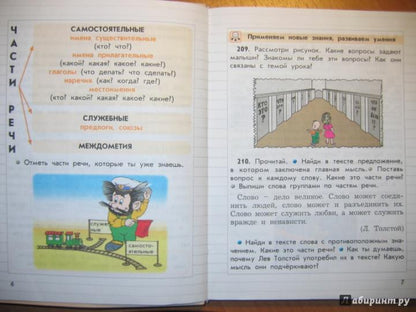 ЧАСТИ РЕЧИ
САМОСТОЯТЕЛЬНЫЕ
имена существительные
(кто? что?)
имена прилагательные
(какой? какая? какое? какие?)
глаголы (что делать? что сделать?)
наречия (как? когда? где?)
местоимения
(кто? какой? какая? какое? какие?)
СЛУЖЕБНЫЕ
предлоги, союзы
МЕЖДОМЕТИЯ
Отметь части речи, которые ты уже знаешь.
служебные
самосто-
ятельные
6
Применяем новые знания, развиваем умения
209. Рассмотри рисунок. Какие вопросы задают
малыши? Знакомы ли тебе эти вопросы? Как они
связаны с темой урока?
КТО
ЭТО?
210. Прочитай. Найди в тексте предложение,
в котором заключена главная мысль. Поставь
вопрос к каждому слову. Какие это части речи?
Выпиши слова группами по частям речи.
Слово — дело великое. Словом может соеди-
нить людей, слово может и разъединить их.
Слово может служить любви, а может служить
вражде и ненависти.
(Л. Толстой)
Найди в тексте слова с противоположным зна-
чением. Какие это части речи? Как ты думаешь,
почему Лев Толстой употребил их в тексте? Какую
мысль они подчёркивают?
7
Лабиринт.ру